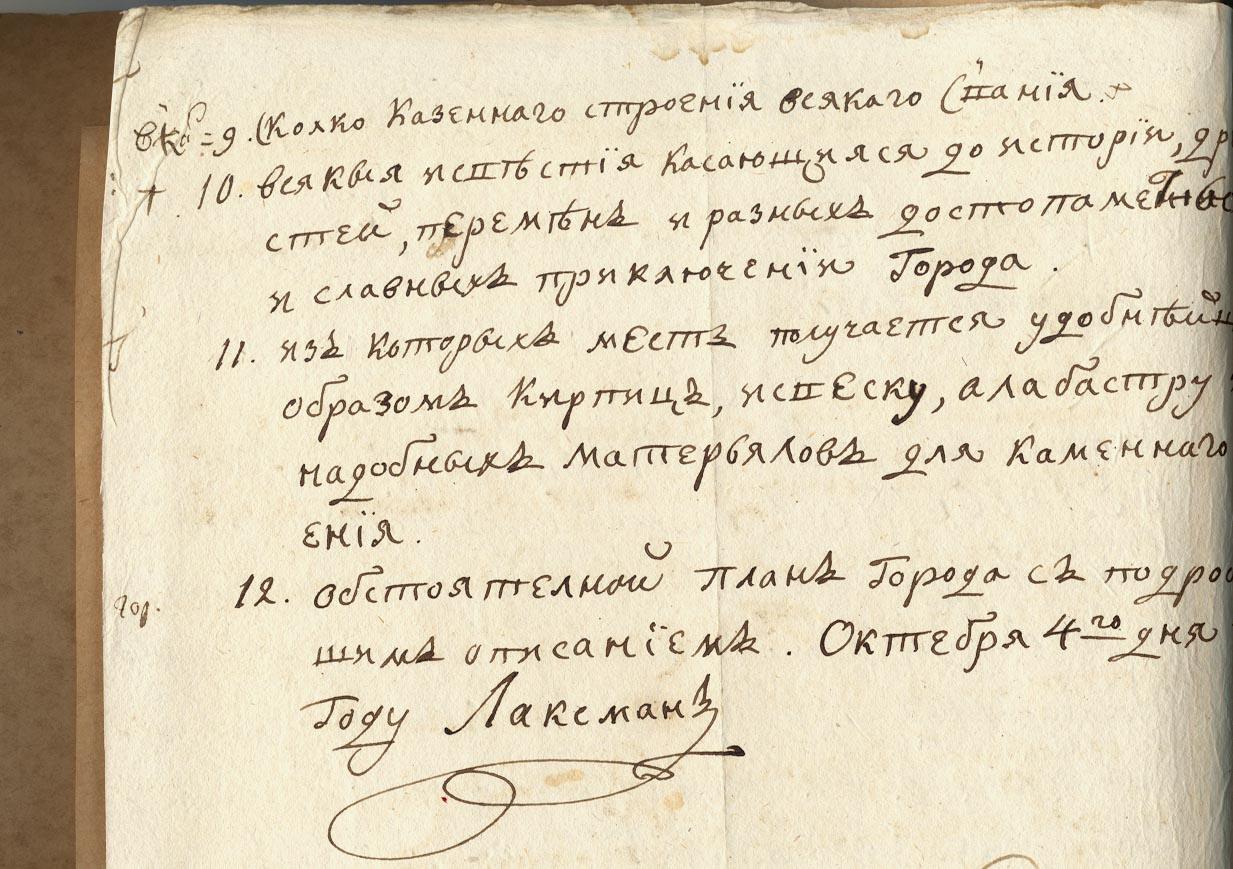 9. Сколко казеннаго строенїя всякаго Спанїя.
10. всякыя испѣстїя касающияся до исторїи, др
стей, перемѣнъ и разныхъ достопамет
и славныхъ приключенїи Города.
11. изъ которыхъ местъ получается удобнѣй
образомъ кирпицъ, испеску, алабастру
надобныхъ матерьяловъ для каменнаго
енїя.
гор. 12. обстоятелной планъ Города съ подро
шимъ описанїемъ. Октебря 4го дня
Году Лаксманъ